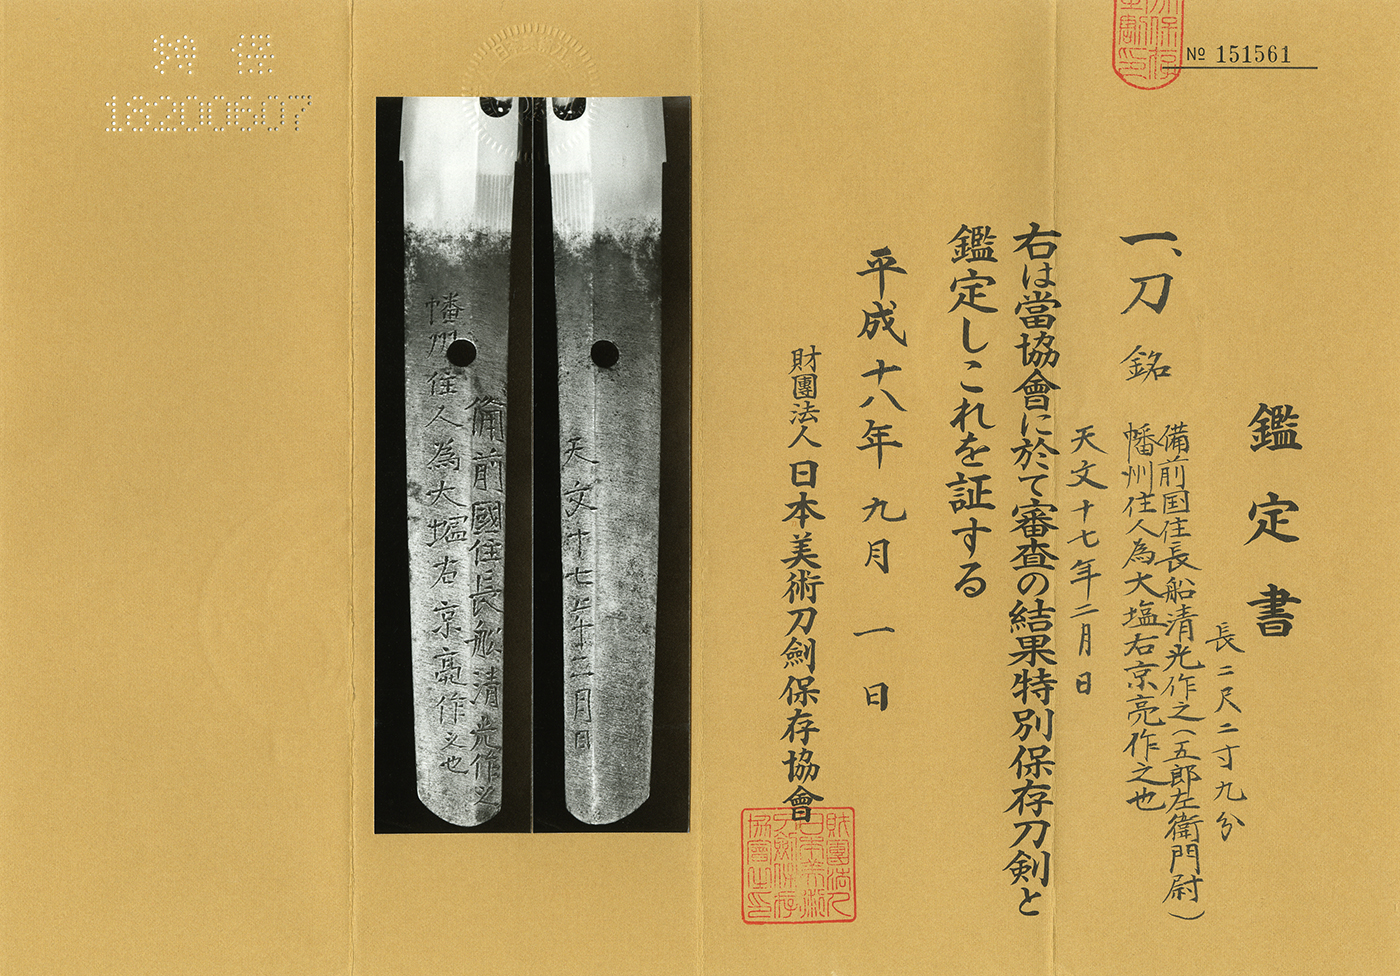 № 151561
鑑定書
長二尺二寸九分
一、刀 銘
備前国住長船清光作之(五郎左衛門尉)
幡州住人為大塩右京亮作之也
天文十七年二月日
右は當協會に於て審査の結果特別保存刀剣と
鑑定しこれを証する
平成十八年九月一日
財團法人日本美術刀劍保存協會
財團法人
日本美術
刀劍保存
協會之印
天文十七年二月日
備前國住長船清光作之
幡州住人為大塩右京亮作之也
特保
18200607